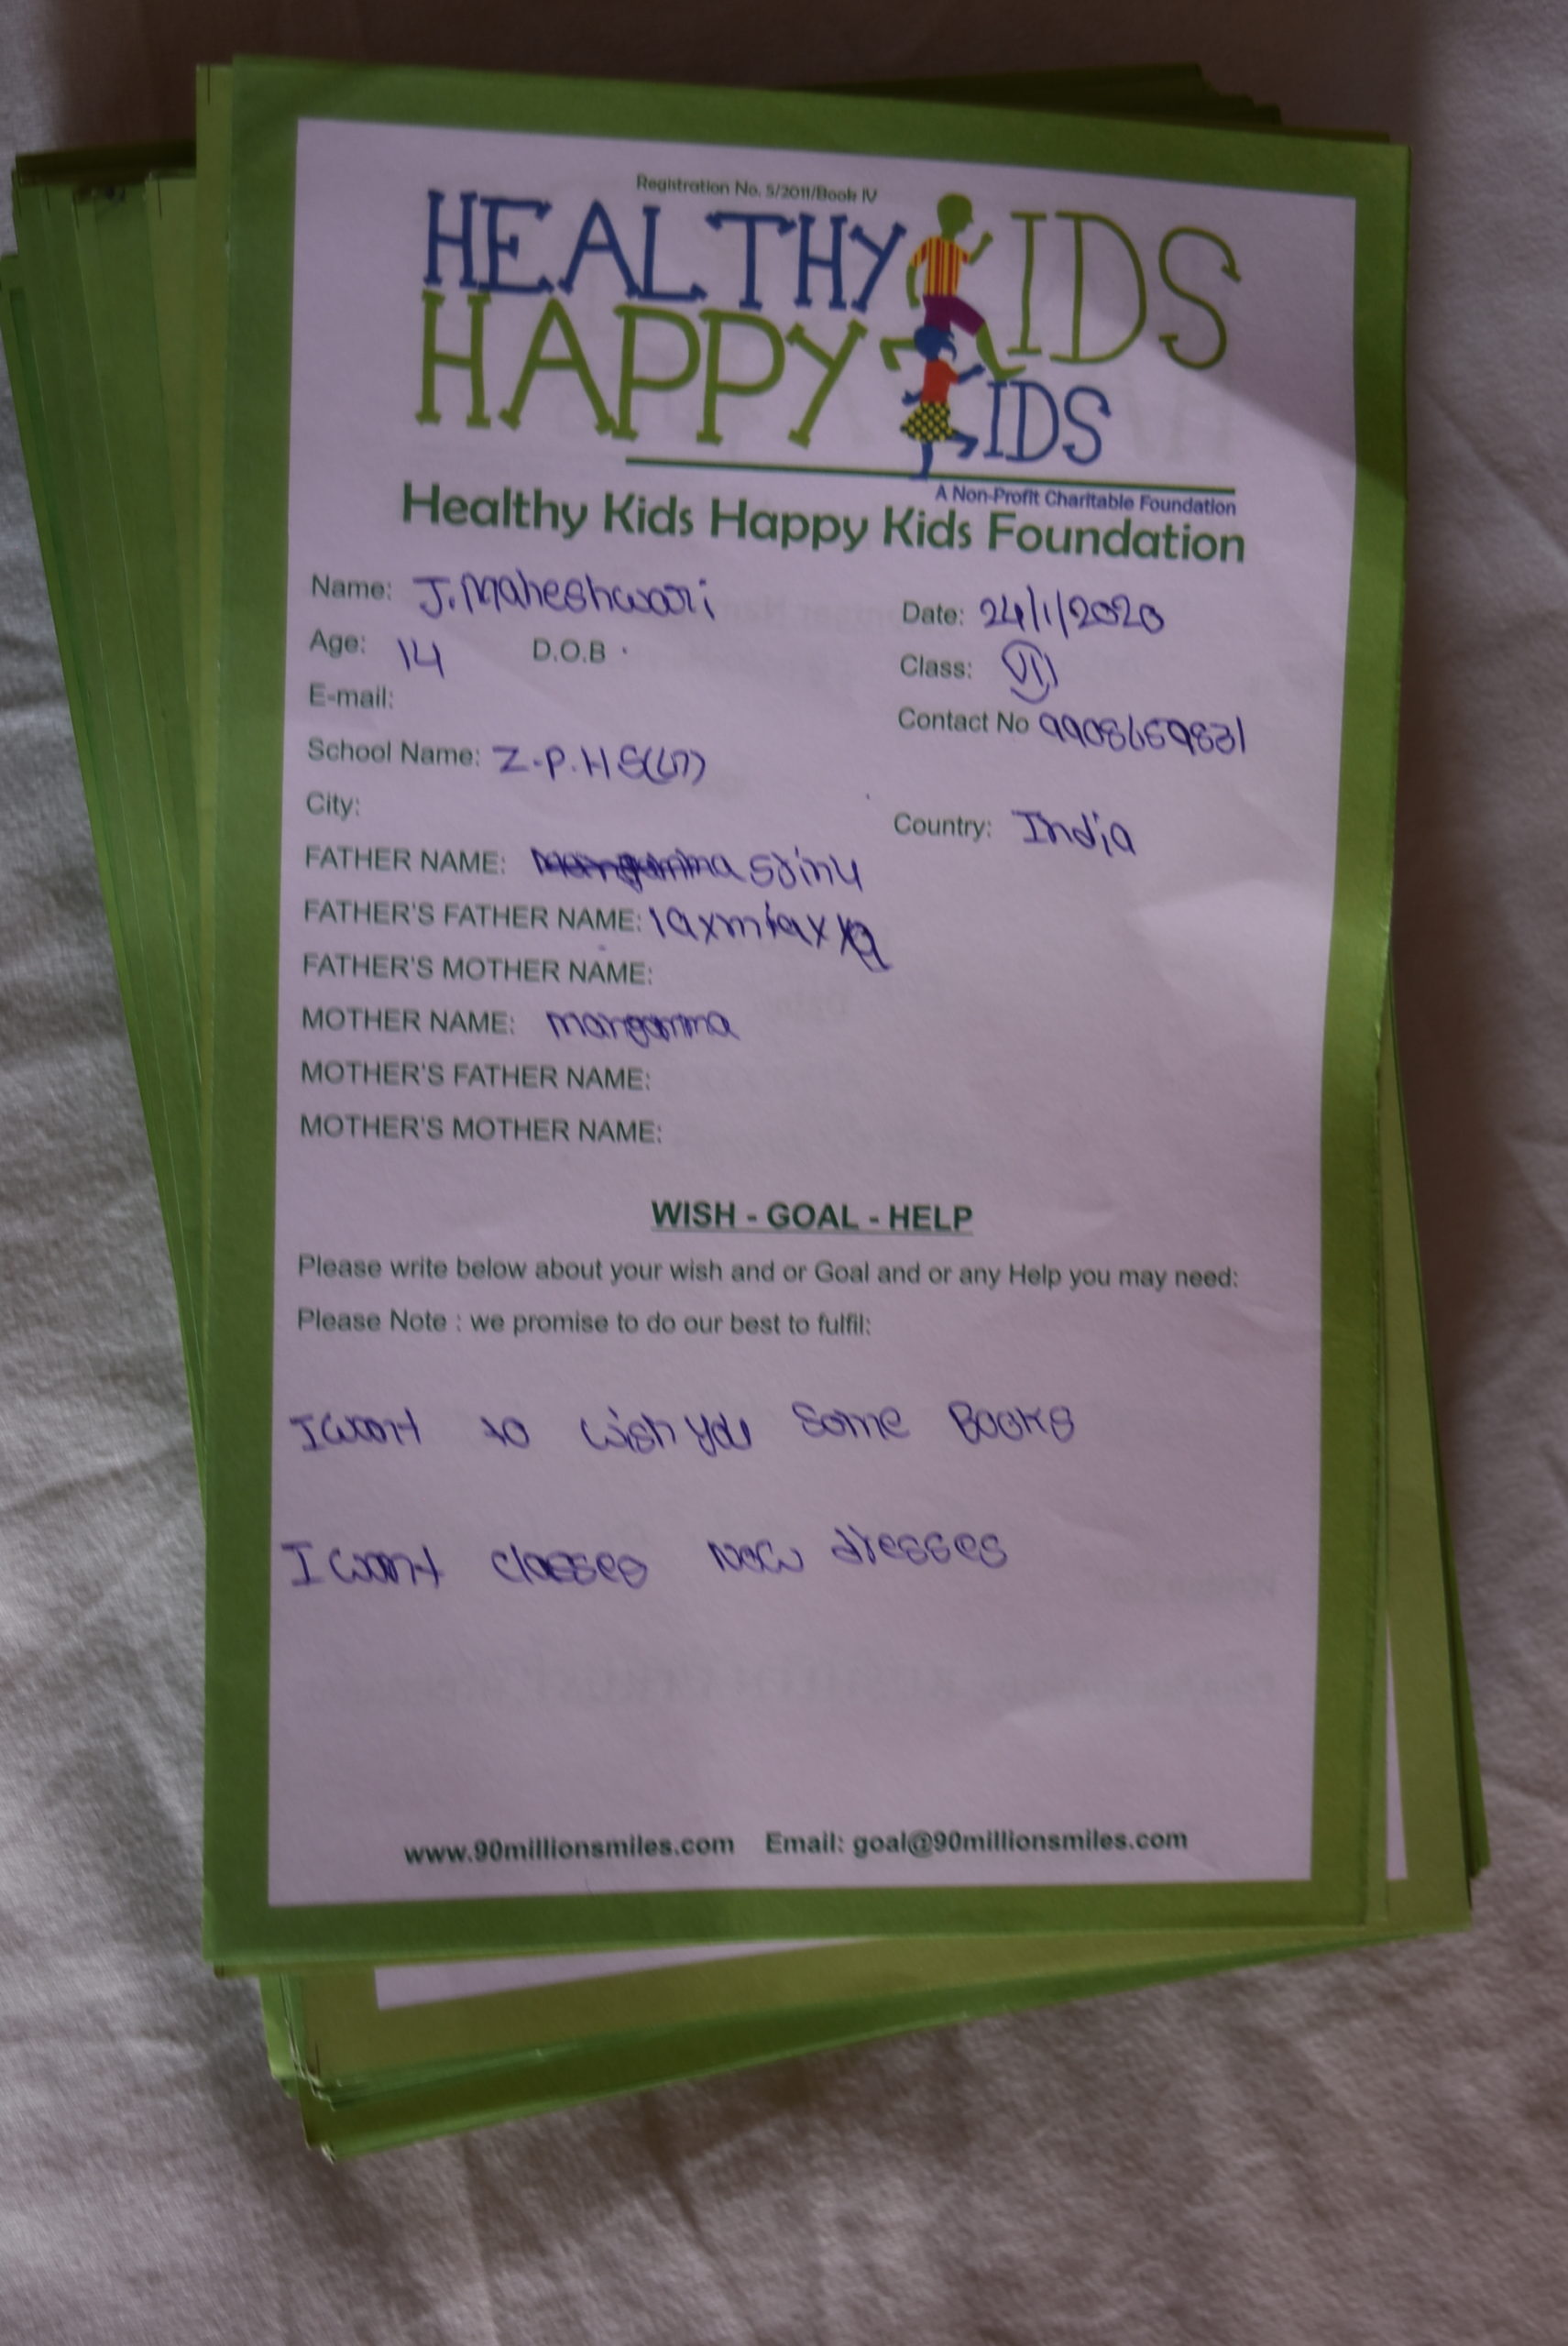 Registration No. 5/2011/Book IV
HEALTHY KIDS
HAPPY KIDS
A Non-Profit Charitable Foundation
Healthy Kids Happy Kids Foundation
Name: J. Maheshwari Date: 24/1/2020
Age: 14 D.O.B Class:
E-mail: Contact No 9908659831
School Name: Z.P.H.S
City: Country: India
FATHER NAME: srinu
FATHER'S FATHER NAME:
FATHER'S MOTHER NAME:
MOTHER NAME: mangamma
MOTHER'S FATHER NAME:
MOTHER'S MOTHER NAME:
WISH - GOAL - HELP
Please write below about your wish and or Goal and or any Help you may need:
Please Note : we promise to do our best to fulfil:
I want to wish you some Books
I want classes new dresses
www.90millionsmiles.com Email: goal@90millionsmiles.com